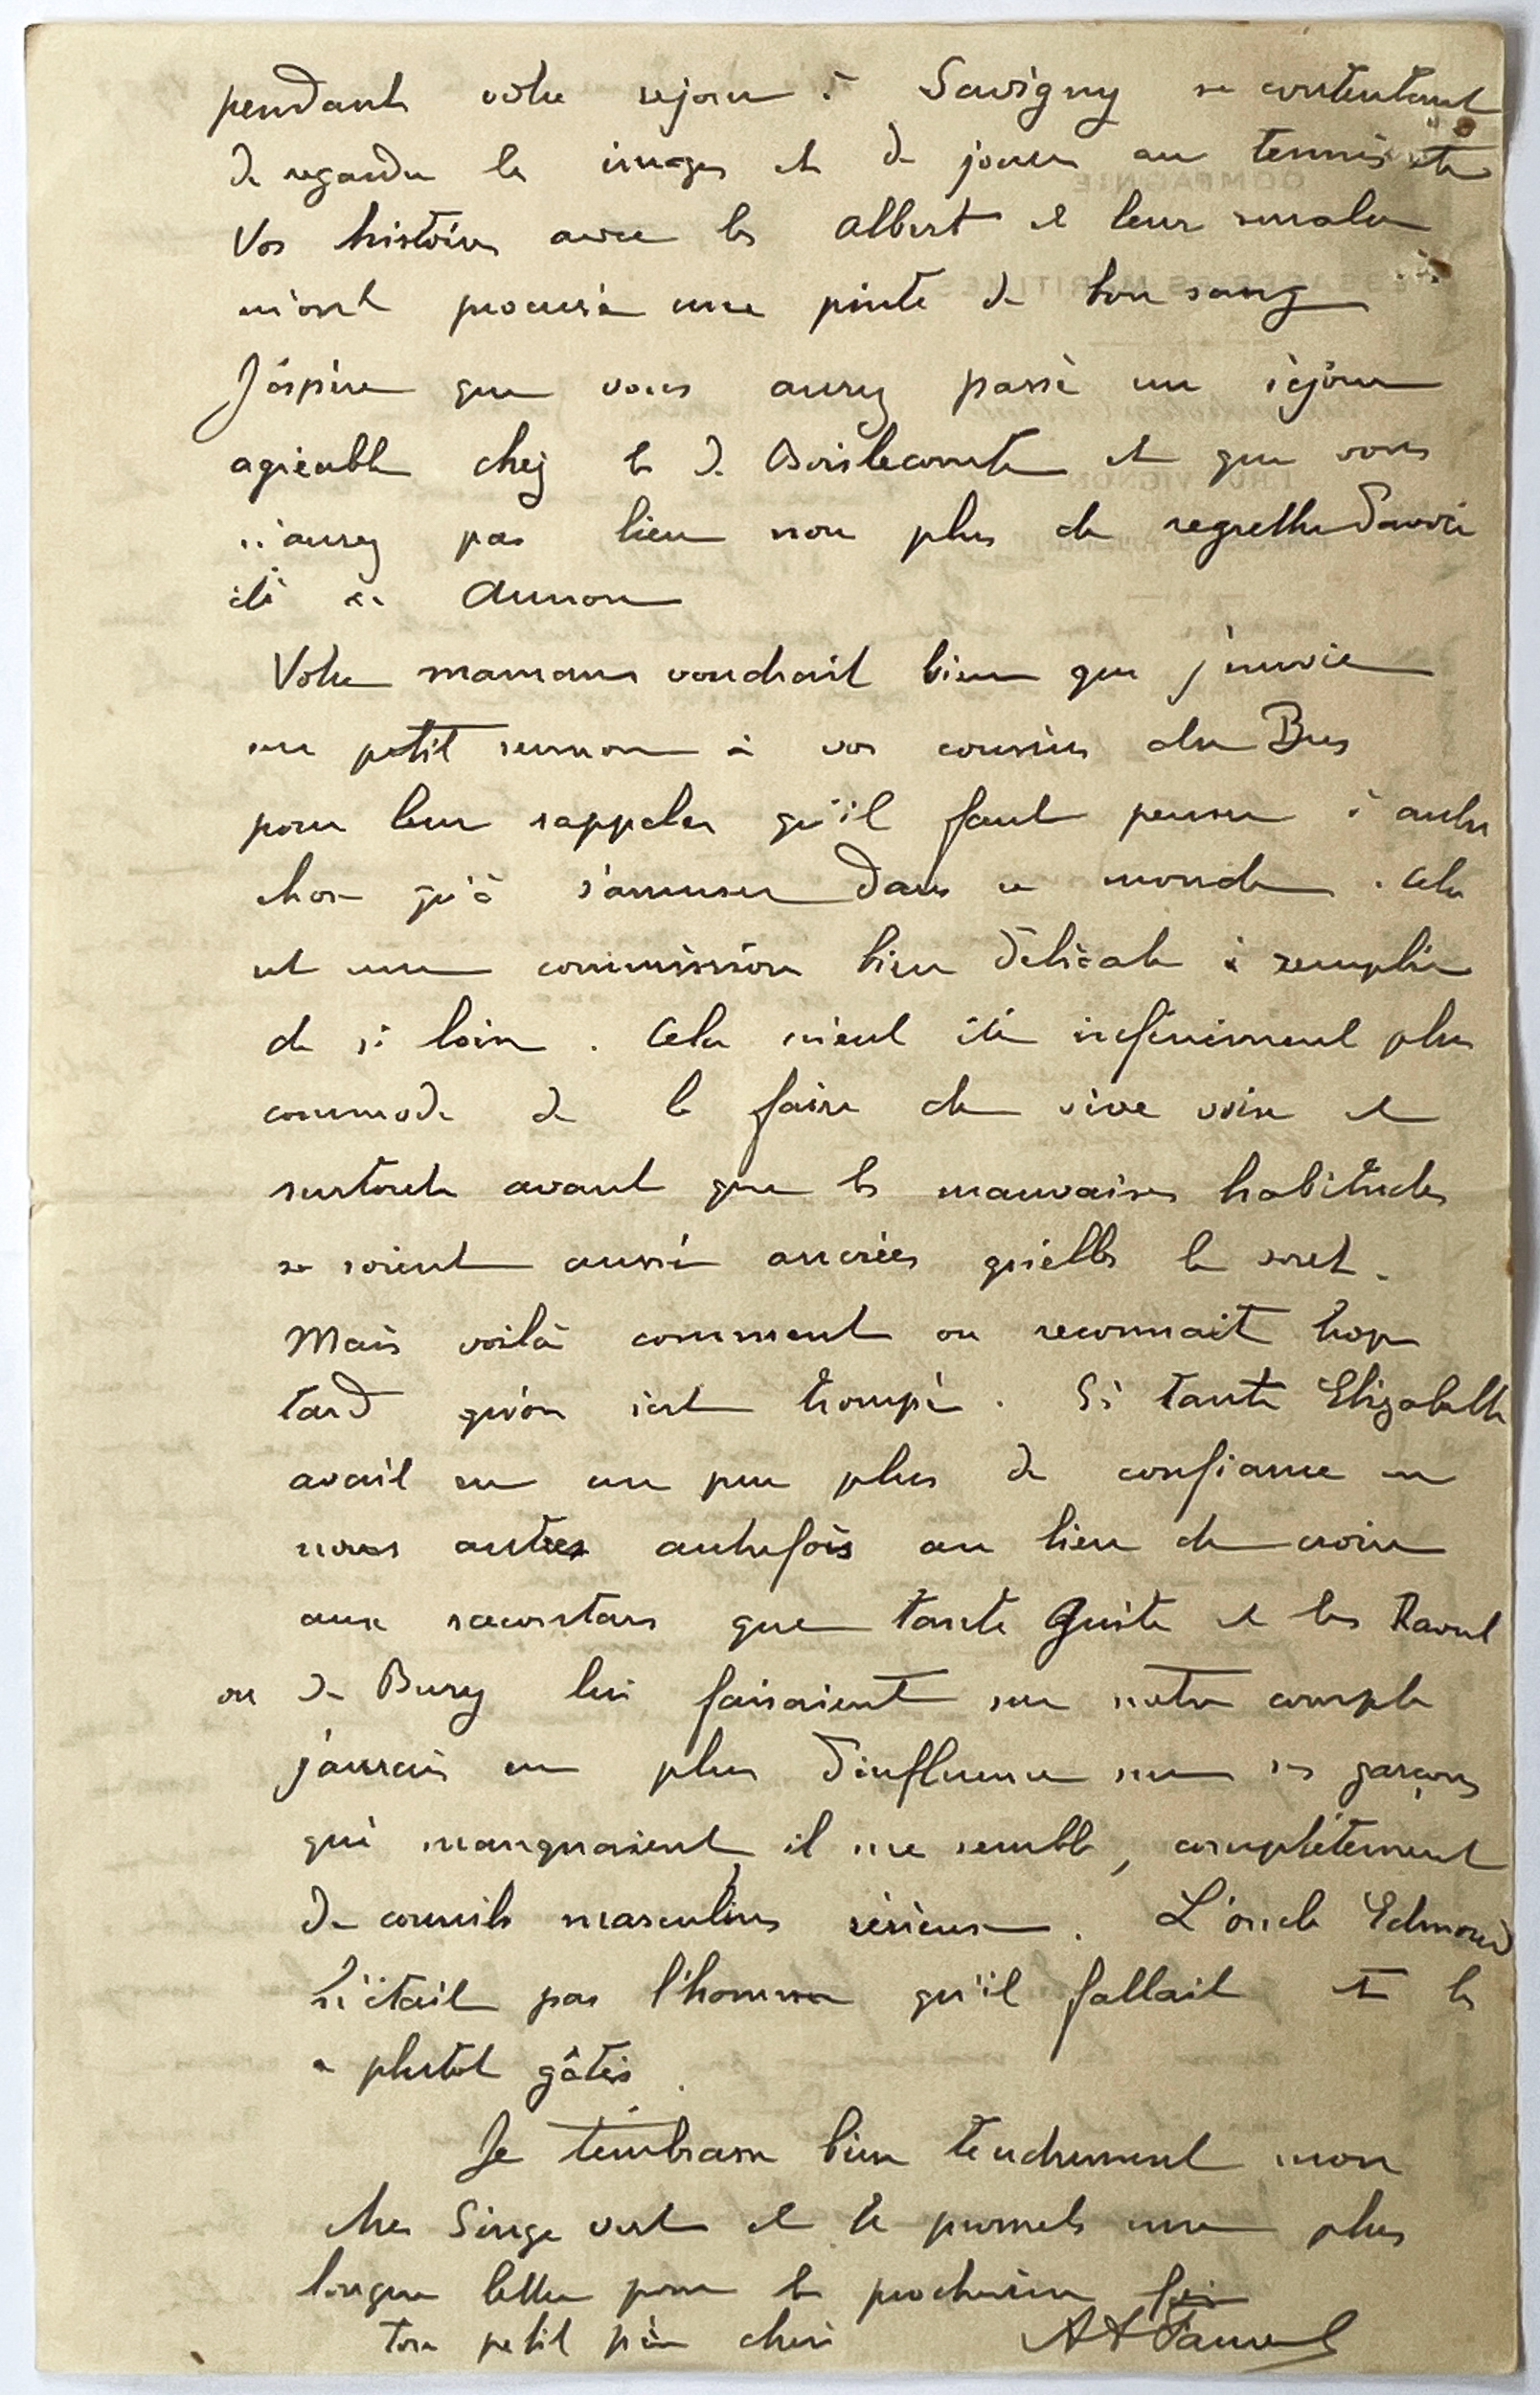 pendant votre séjour à Savigny se contentant
de regarder les images et de jouer au tennis etc
Vos histoires avec les Albert et leur smala
m'ont procuré une pinte de bon sang
J'espère que vous aurez passé un séjour
agréable chez les de Boislecomte et que vous
n'aurez pas lieu non plus de regretter d'avoir
été à
Votre maman voudrait bien que j'envoie
un petit sermon à vos cousins du Bus
pour leur rappeler qu'il faut penser à autre
chose qu'à s'amuser dans ce monde. Cela
est une commission bien délicate à remplir
de si loin. Cela m'eut été infiniment plus
commode de le faire de vive voix et
surtout avant que les mauvaises habitudes
se soient aussi ancrées qu'elles le sont.
Mais voilà comment on reconnait trop
tard qu'on s'est trompé. Si tante Elizabeth
avait eu un peu plus de confiance en
nous autres autrefois au lieu de croire
aux racontars que tante Guite et les Raoul
ou de Bury lui faisaient sur notre compte
j'aurais eu plus d'influence sur ses garçons
qui manquaient, il me semble, complètement
de conseils masculins sérieux. L'oncle Edmond
n'était pas l'homme qu'il fallait et les
a plutôt gâtés.
Je t'embrasse bien tendrement mon
cher Singe vert et te promets une plus
longue lettre pour la prochaine fois
ton petit père chéri